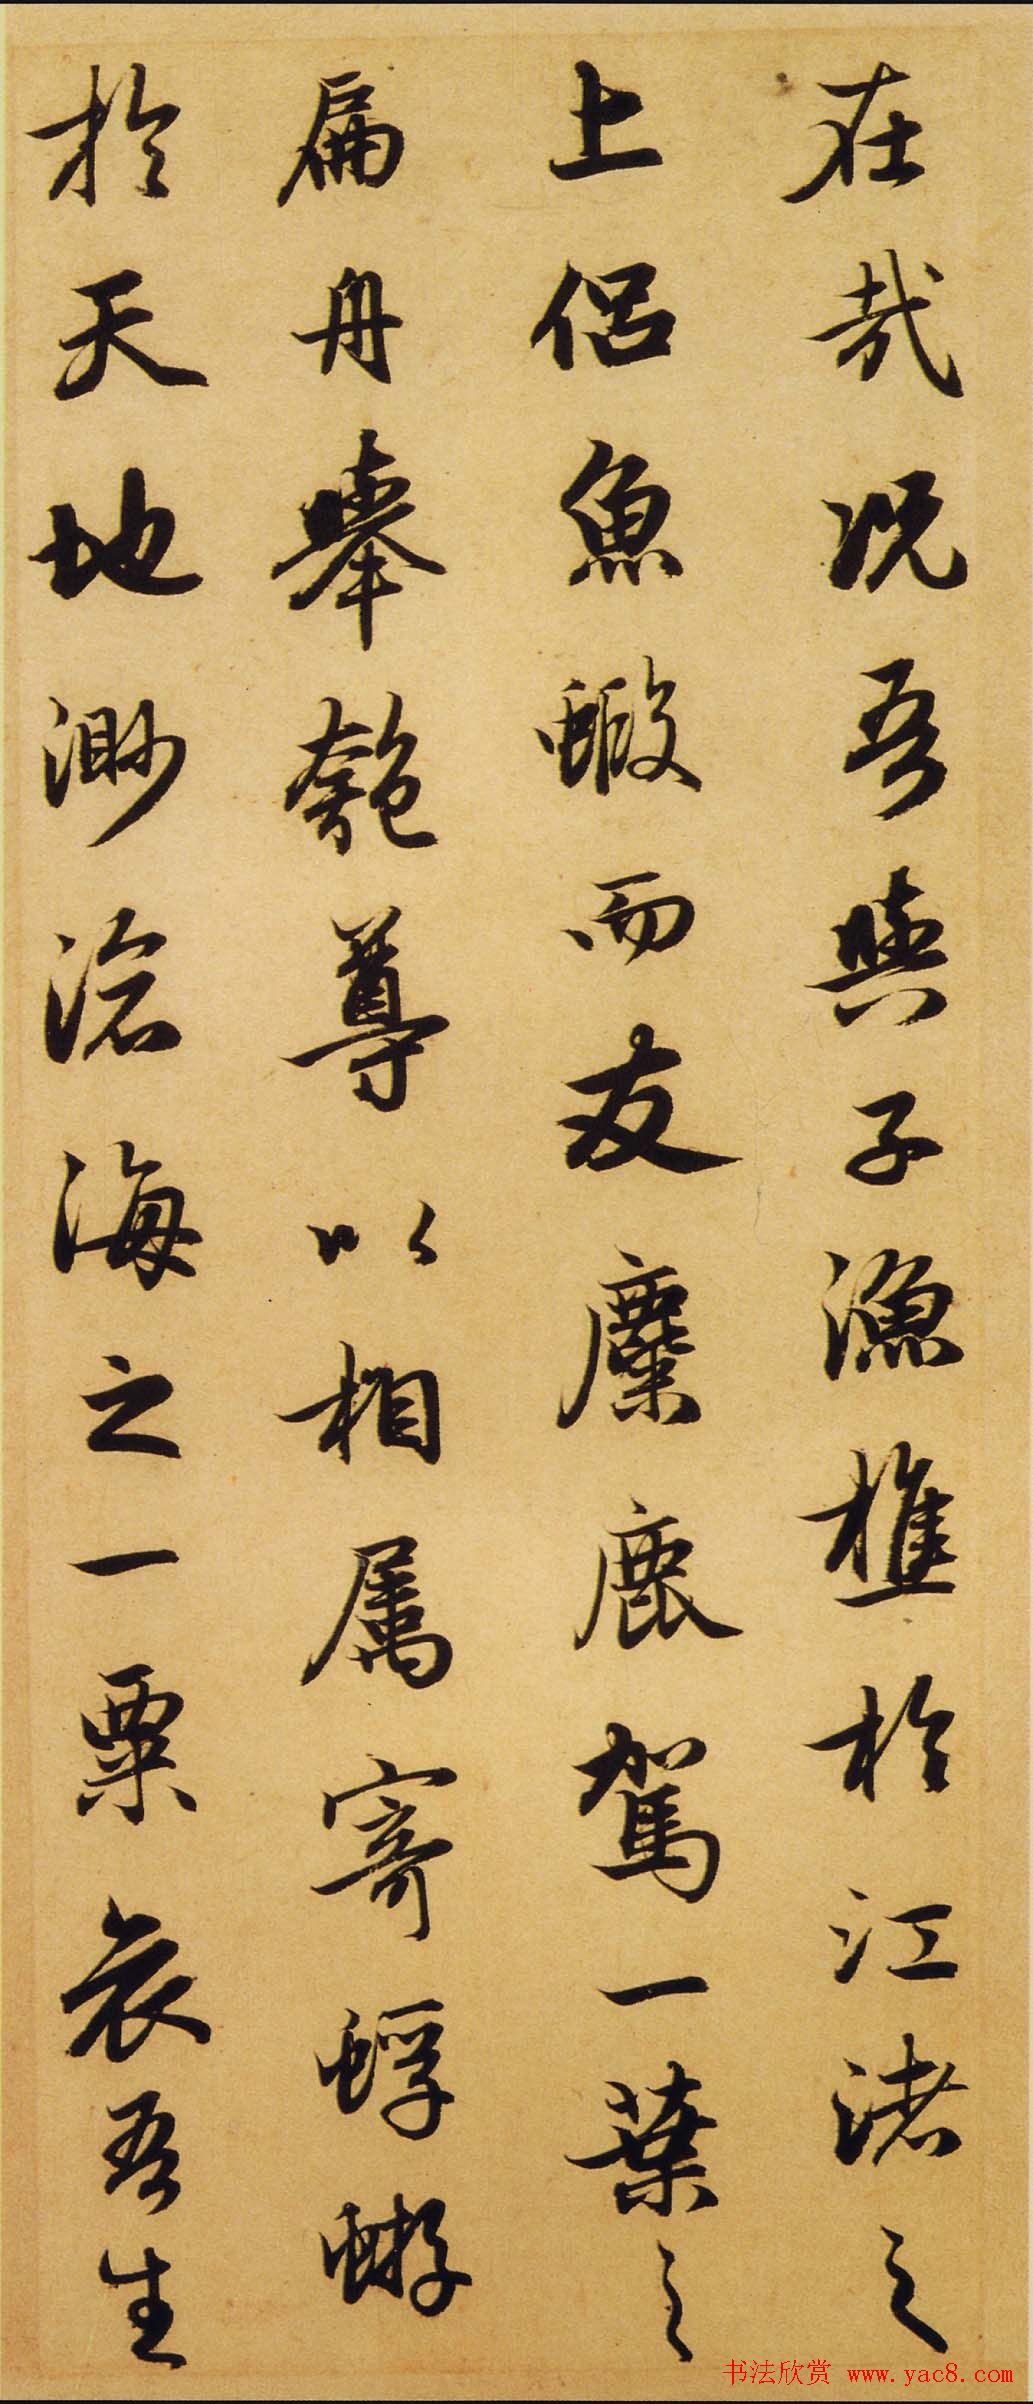 在哉况吾與子漁樵於江渚之
上侣魚蝦而友麋鹿駕一葉之
扁舟舉匏尊以相属寄蜉蝣
於天地渺滄海之一粟哀吾生
书法欣赏 www.yac8.com